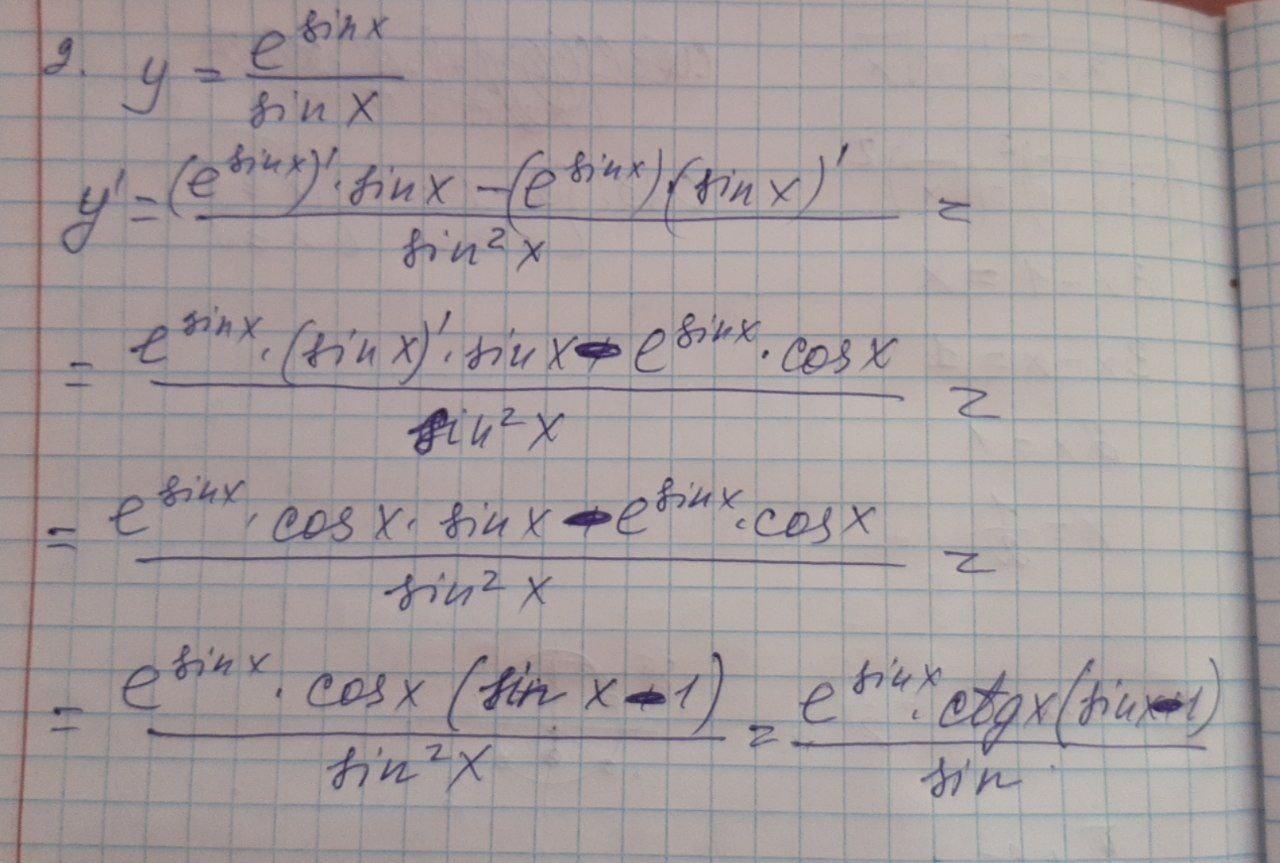 2. y = e^{sin x} / sin x
y' = ((e^{sin x})' · sin x - (e^{sin x}) · (sin x)') / sin² x =
= (e^{sin x} · (sin x)' · sin x - e^{sin x} · cos x) / sin² x =
= (e^{sin x} · cos x · sin x - e^{sin x} · cos x) / sin² x =
= (e^{sin x} · cos x (sin x - 1)) / sin² x = (e^{sin x} · ctg x (sin x - 1)) / sin